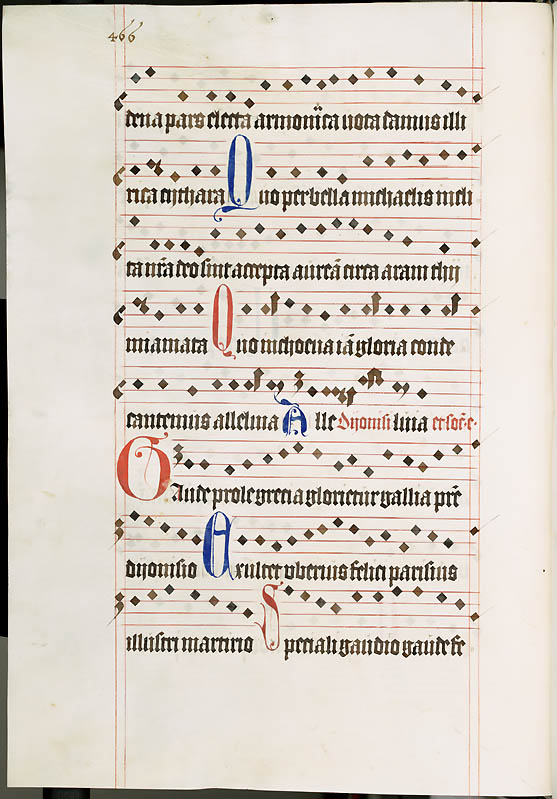 466
dena pars electa armonica vota damus illi
rica cythara Quo per bella michaelis incli
ta nr̄a deo sint accepta aureā circa aram thy
miamata Quo in hoc ena iā gloria conde
cantemus alleluia Alle Dyonisi luia et soc̄. e.
Gaude prole grecia glorietur gallia pr̄e
dyonisio Exultet vberius felici parisius
illustri martirio Speciali gaudio gaude fe